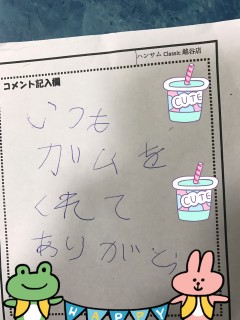 ハンサム Classic 越谷店
コメント記入欄
CUTE
いつも
ガムを
くれて
ありがとう
CUTE
HAPPY